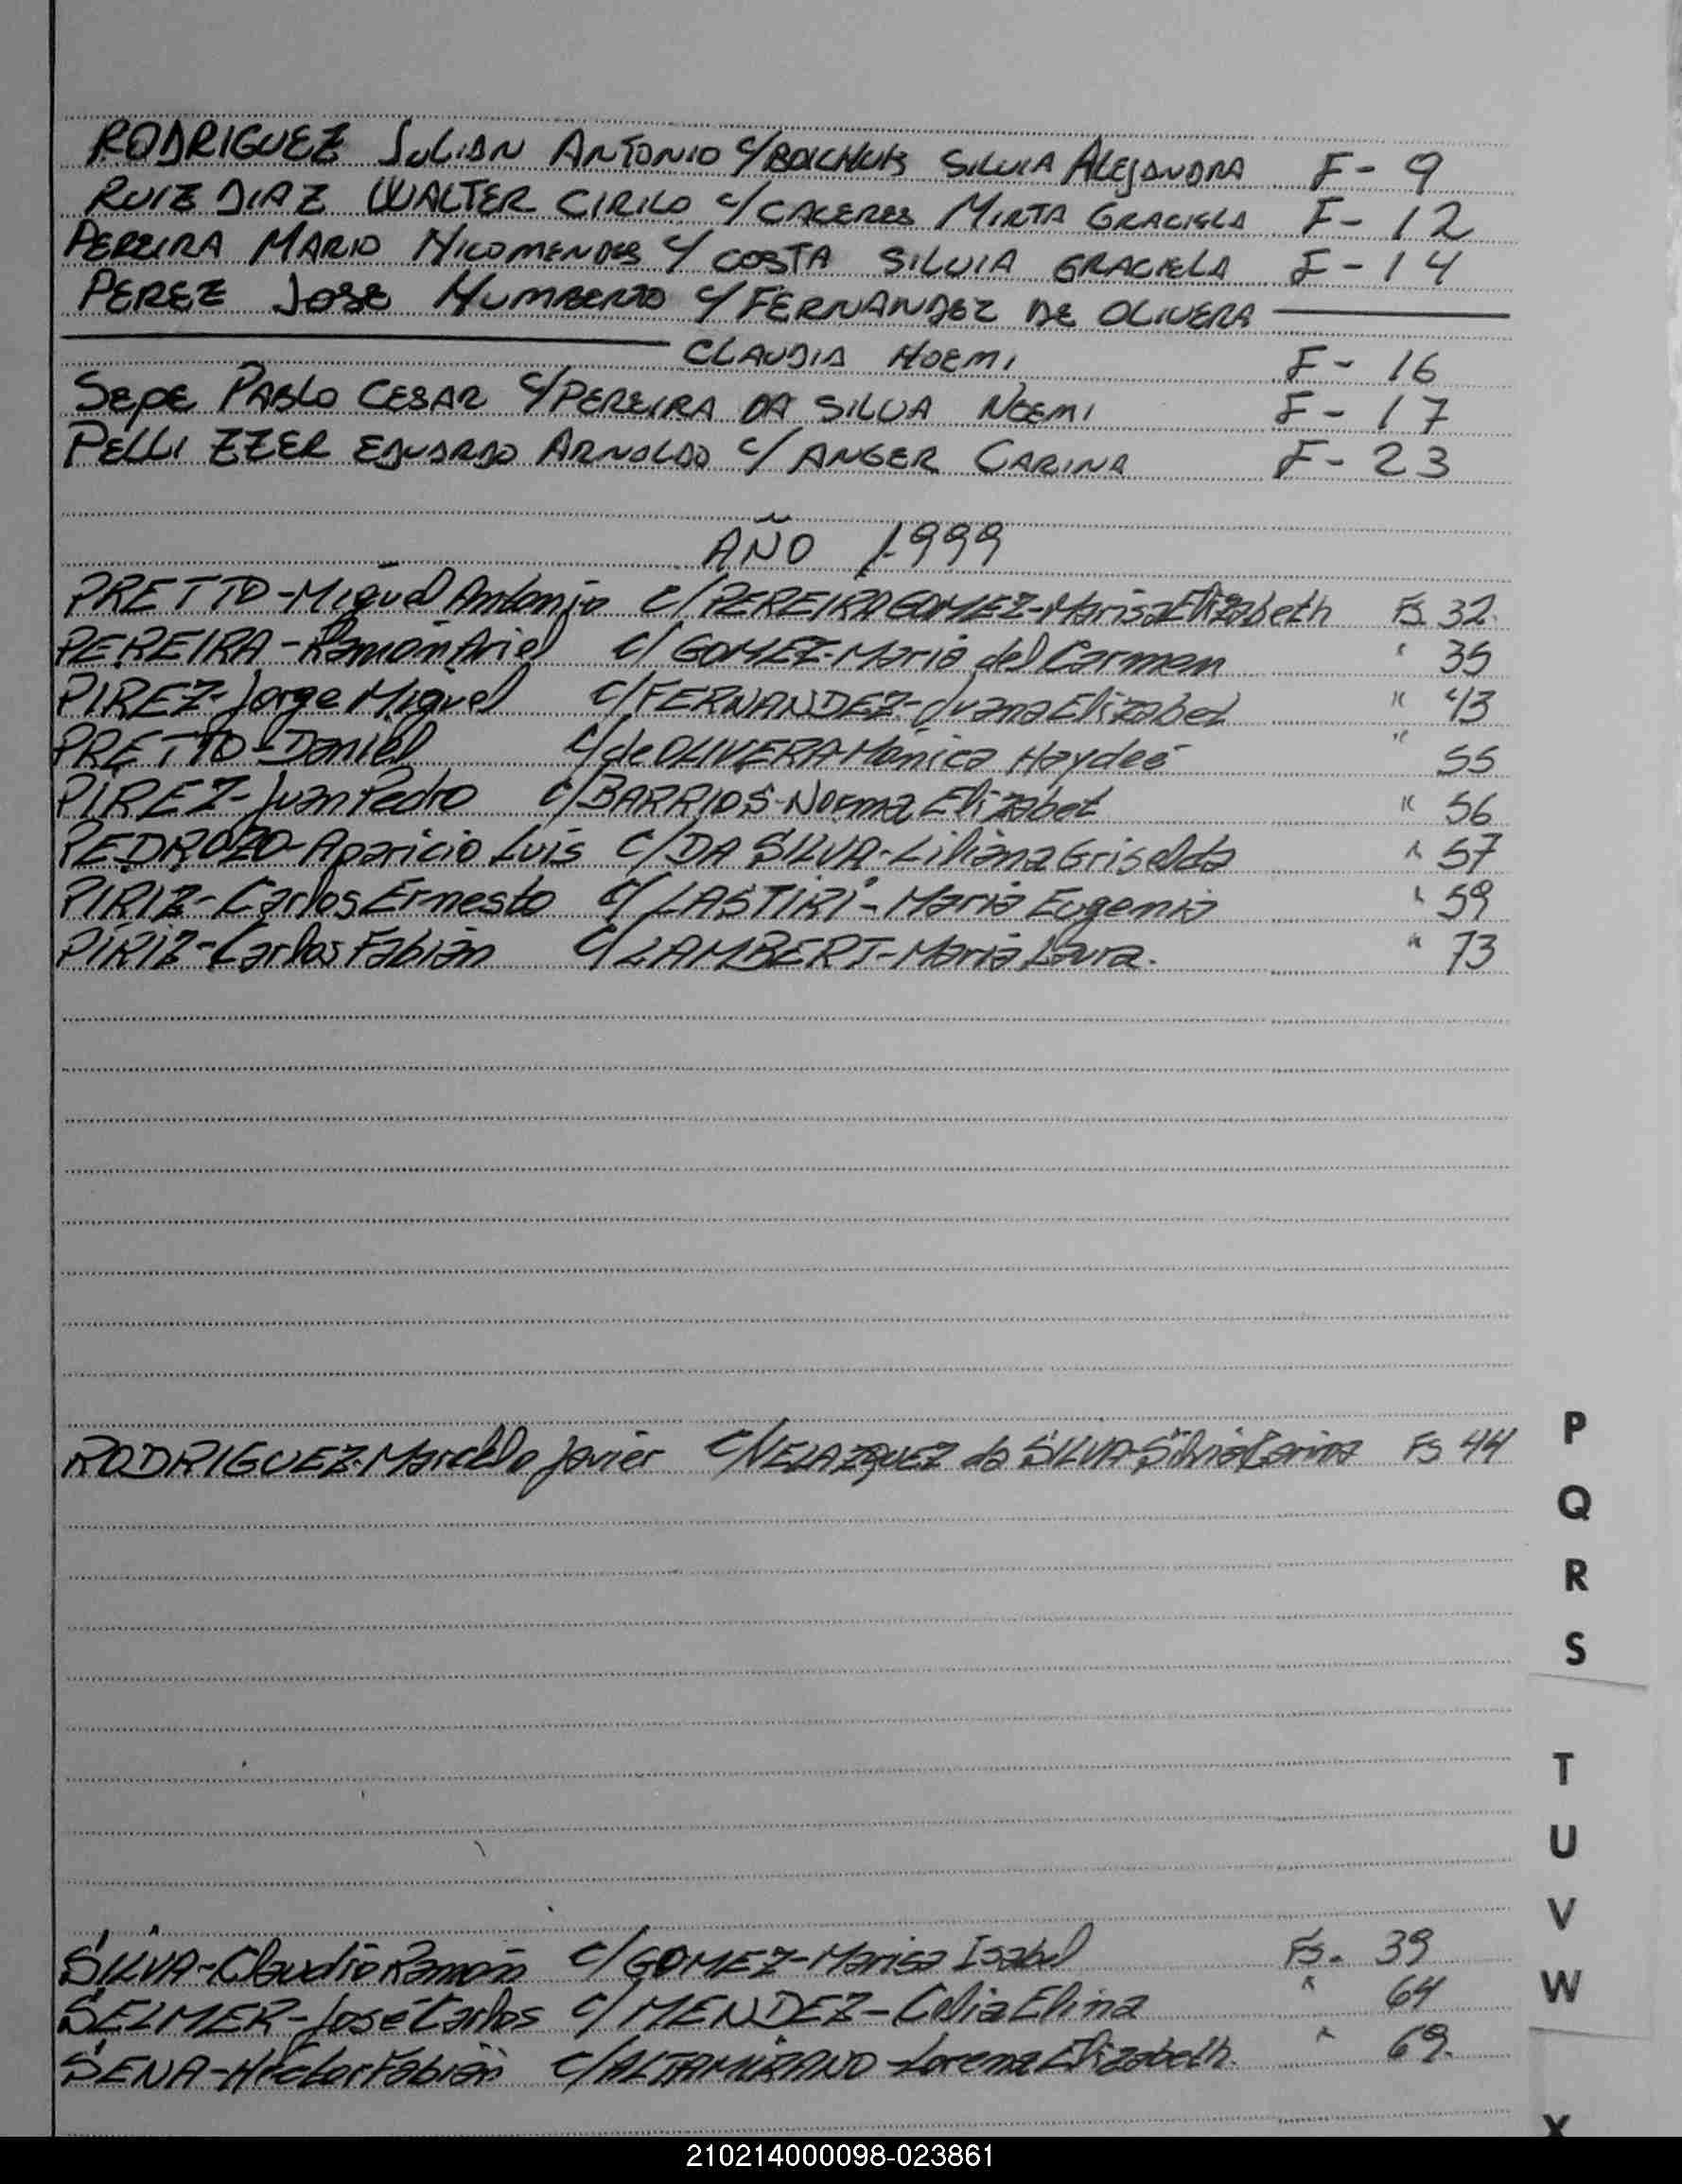 RODRIGUEZ JULIAN ANTONIO C/ SILVIA ALEJANDRA F- 9
RUIZ DIAZ WALTER CIRILO C/ CACERES MIRTA GRACIELA F- 12
PEREIRA MARIO NICOMENDES C/ COSTA SILVIA GRACIELA F- 14
PEREZ JOSE HUMBERTO C/ FERNANDEZ DE OLIVERA
CLAUDIA NOEMI F- 16
SEPE PABLO CESAR C/ PEREIRA DA SILVA NOEMI F- 17
PELLI ZZER EDUARDO ARNOLDO C/ ANGER CARINA F- 23
AÑO 1999
PRETTO-Miguel Antonio C/ PEREIRA GOMEZ-Marisa Elizabeth Fs. 32.
PEREIRA-Ramón Ariel C/ GOMEZ-María del Carmen " 35
PIREZ-Jorge Miguel C/ FERNANDEZ-Juana Elizabet " 43
PRETTO-Daniel C/ de OLIVERA-Mónica Haydeé " 55
PIREZ-Juan Pedro C/ BARRIOS-Norma Elizabet " 56
PEDROZO-Aparicio Luis C/ DA SILVA-Liliana Griselda " 57
PIRIZ-Carlos Ernesto C/ LASTIRI-María Eugenia " 59
PIRIZ-Carlos Fabián C/ LAMBERT-María Laura. " 73
RODRIGUEZ-Marcelo Javier C/ VELAZQUEZ da SILVA-Silvia Carina Fs 44
P
Q
R
S
T
U
V
W
X
SILVA-Claudio Ramón C/ GOMEZ-Marisa Isabel Fs. 39
SELMER-José Carlos C/ MENDEZ-Celia Elina " 64
SENA-Héctor Fabián C/ ALTAMIRANO-Lorena Elizabeth. " 69.
210214000098-023861